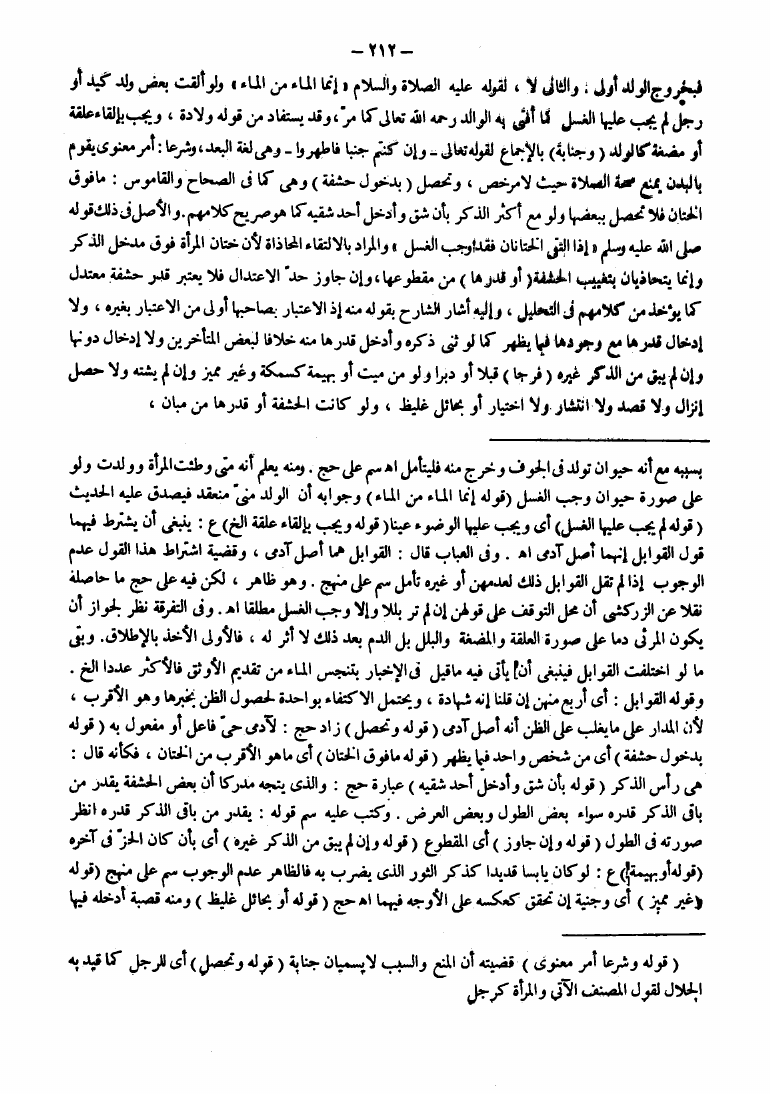 – ٢١٢ –
فبخروج الولد أولى ، والثانى لا ، لقوله عليه الصلاة والسلام « إنما الماء من الماء » ولو ألقت بعض ولد كيد أو
رجل لم يجب عليها الغسل كما أفتى به الوالد رحمه الله تعالى كما مرّ ، وقد يستفاد من قوله ولادة ، ويجب بإلقاء علقة
أو مضغة كالولد ( وجنابة ) بالإجماع لقوله تعالى ـ وإن كنتم جنبا فاطهروا ـ وهى لغة البعد ، وشرعا : أمر معنوى يقوم
بالبدن يمنع صحة الصلاة حيث لا مرخص ، وتحصل ( بدخول حشفة ) وهى كما فى الصحاح والقاموس : مافوق
الختان فلا تحصل ببعضها ولو مع أكثر الذكر بأن شق وأدخل أحد شقيه كما هو صريح كلامهم . والأصل فى ذلك قوله
صلى الله عليه وسلم « إذا التقى الختانان فقد وجب الغسل » والمراد بالالتقاء المحاذاة لأن ختان المرأة فوق مدخل الذكر
وإنما يتحاذيان بتغييب الحشفة ( أو قدرها ) من مقطوعها ، وإن جاوز حدّ الاعتدال فلا يعتبر قدر حشفة معتدل
كما يؤخذ من كلامهم فى التحليل ، وإليه أشار الشارح بقوله منه إذ الاعتبار بصاحبها أولى من الاعتبار بغيره ، ولا
إدخال قدرها مع وجودها فيما يظهر كما لو ثنى ذكره وأدخل قدرها منه خلافا لبعض المتأخرين ولا إدخال دونها
وإن لم يبق من الذكر غيره ( فرجا ) قبلا أو دبرا ولو من ميت أو بهيمة كسمكة وغير مميز وإن لم يشته ولا حصل
إنزال ولا قصد ولا انتشار ولا اختيار أو بحائل غليظ ، ولو كانت الحشفة أو قدرها من مبان ،
بسببه مع أنه حيوان تولد فى الجوف وخرج منه فليتأمل اهـ سم على حج . ومنه يعلم أنه متى وطئت المرأة وولدت ولو
على صورة حيوان وجب الغسل ( قوله إنما الماء من الماء ) وجوابه أن الولد منىّ منعقد فيصدق عليه الحديث
( قوله لم يجب عليها الغسل ) أى ويجب عليها الوضوء عينا ( قوله ويجب بإلقاء علقة الخ ) ع : ينبغى أن يشترط فيهما
قول القوابل إنهما أصل آدمى اهـ . وفى العباب قال : القوابل هما أصل آدمى ، وقضية اشتراط هذا القول عدم
الوجوب إذا لم تقل القوابل ذلك لعدمهن أو غيره تأمل سم على منهج . وهو ظاهر ، لكن فيه على حج ما حاصله
نقلا عن الزركشى أن محل التوقف على قولهن إن لم تر بللا وإلا وجب الغسل مطلقا اهـ . وفى التفرقة نظر لجواز أن
يكون المرئى دما على صورة العلقة والمضغة والبلل بل الدم بعد ذلك لا أثر له ، فالأولى الأخذ بالإطلاق . وبقى
ما لو اختلفت القوابل فينبغى أن يأتى فيه ماقيل فى الإخبار بتنجس الماء من تقديم الأوثق فالأكثر عددا الخ .
وقوله القوابل : أى أربع منهن إن قلنا إنه شهادة ، ويحتمل الاكتفاء بواحدة لحصول الظن بخبرها وهو الأقرب ،
لأن المدار على مايغلب على الظن أنه أصل آدمى ( قوله وتحصل ) زاد حج : لآدمى حىّ فاعل أو مفعول به ( قوله
بدخول حشفة ) أى من شخص واحد فيما يظهر ( قوله مافوق الختان ) أى ماهو الأقرب من الختان ، فكأنه قال :
هى رأس الذكر ( قوله بأن شق وأدخل أحد شقيه ) عبارة حج : والذى يتجه مدركا أن بعض الحشفة يقدر من
باقى الذكر قدره سواء بعض الطول وبعض العرض . وكتب عليه سم قوله : يقدر من باقى الذكر قدره انظر
صورته فى الطول ( قوله وإن جاوز ) أى المقطوع ( قوله وإن لم يبق من الذكر غيره ) أى بأن كان الحزّ فى آخره
( قوله أو بهيمة ) ع : لو كان يابسا قديدا كذكر الثور الذى يضرب به فالظاهر عدم الوجوب سم على منهج ( قوله
غير مميز ) أى وجنية إن تحقق كعكسه على الأوجه فيهما اهـ حج ( قوله أو بحائل غليظ ) ومنه قصبة أدخله فيها
( قوله وشرعا أمر معنوى ) قضيته أن المنع والسبب لا يسميان جنابة ( قوله وتحصل ) أى للرجل كما قيد به
الجلال لقول المصنف الآتى والمرأة كرجل